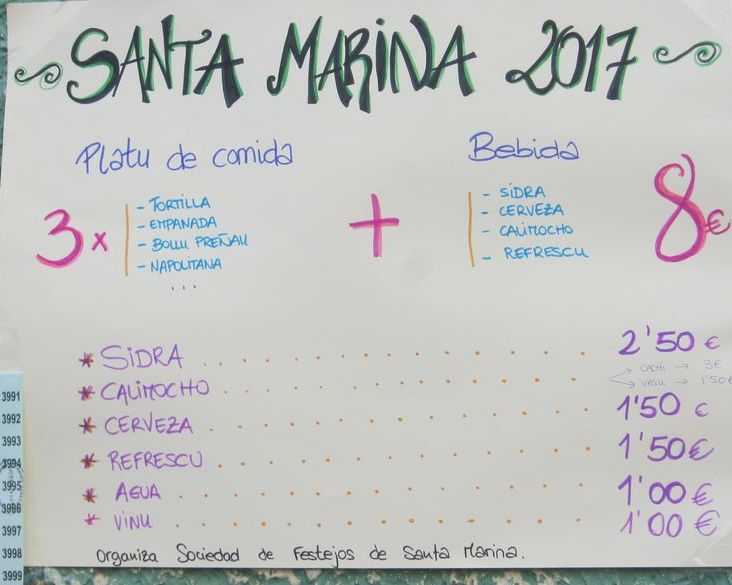 SANTA MARINA 2017
Platu de comida
Bebida
3x
- TORTILLA
- EMPANADA
- BOLLU PREÑAU
- NAPOLITANA
...
+
- SIDRA
- CERVEZA
- CALIMOCHO
- REFRESCU
8€
* SIDRA 2'50 €
* CALIMOCHO CACHI → 3€
VASU → 1'50€
* CERVEZA 1'50 €
* REFRESCU 1'50€
* AGUA 1'00 €
* VINU 1'00 €
Organiza Sociedad de Festejos de Santa Marina.
3991
3992
3993
3994
3995
3996
3997
3998
3999